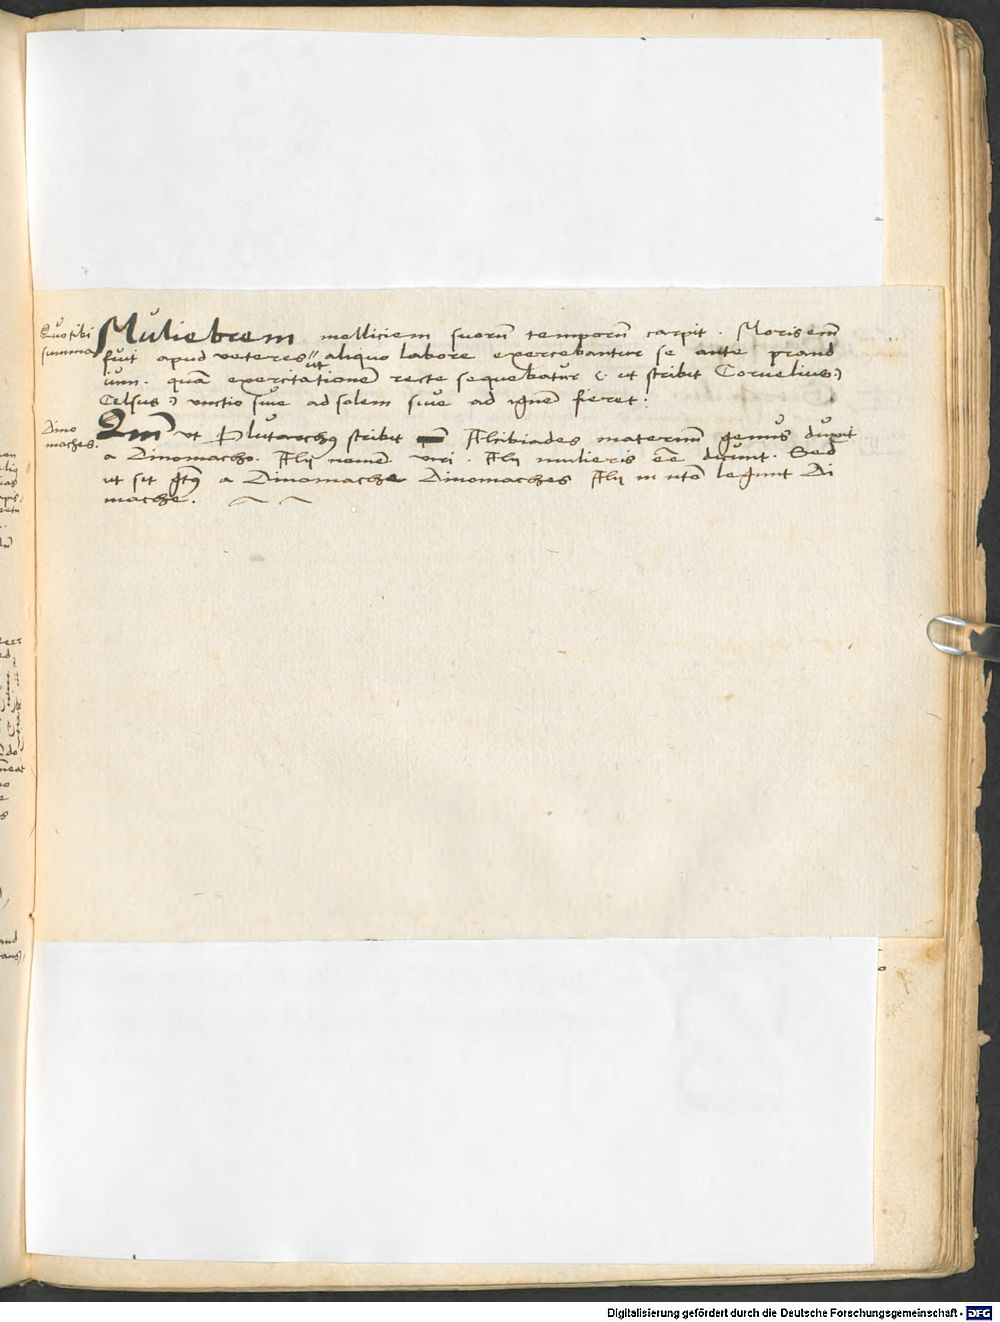 Quo tibi
summa
Muliebrem molliciem suorū temporū carpit. Moris em̄
fuit apud veteres ut aliquo labore exercebantur se ante prand
ium. quā exercitationē recte sequebatur (. ut scribit Cornelius:)
Celsus) unctio siue ad solem siue ad ignem fieret:
Dino
maches.
Qm̄ ut Plutarchꝰ scribit Alcibiades maternum genus duxit
a Dinomacho. Alij nomē viri. Alij mulieris eē dicunt. Sed
ut sit gtꝰ a Dinomache Dinomaches Alij in utō legunt Di
mache.
Digitalisierung gefördert durch die Deutsche Forschungsgemeinschaft - DFG